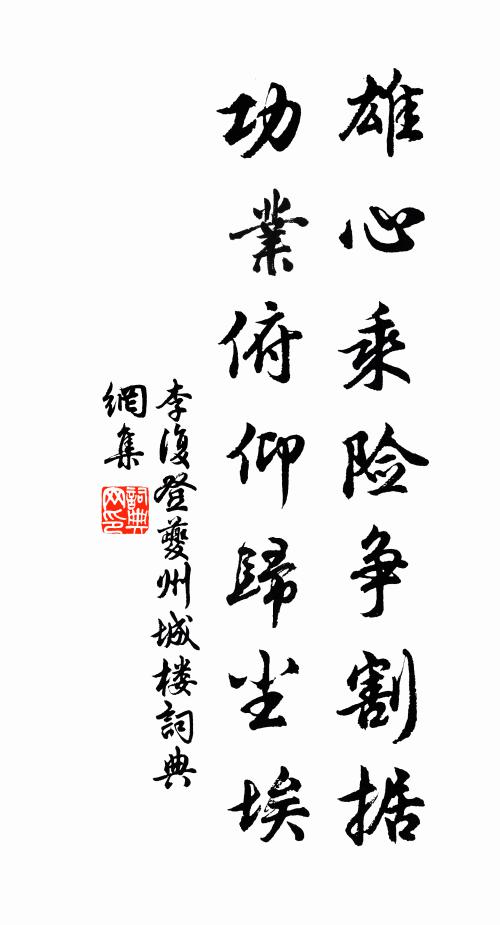 雄心乘险争割据
功業俯仰歸尘埃
李復登夔州城楼詞典
網集
詞典
网印